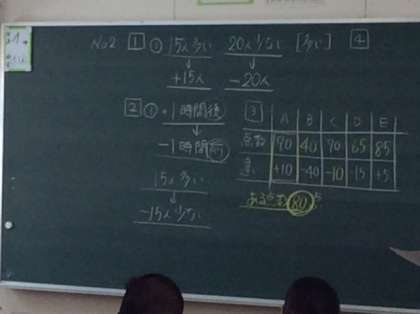 No2 1 ① 15人多い 20人少ない [多い] 4
↓ ↓
+15人 -20人
2 ① +1時間後
↓
-1時間前
15人多い
↓
-15人少ない
3
A B C D E
点数 90 40 70 65 85
違い +10 -40 -10 -15 +5
80